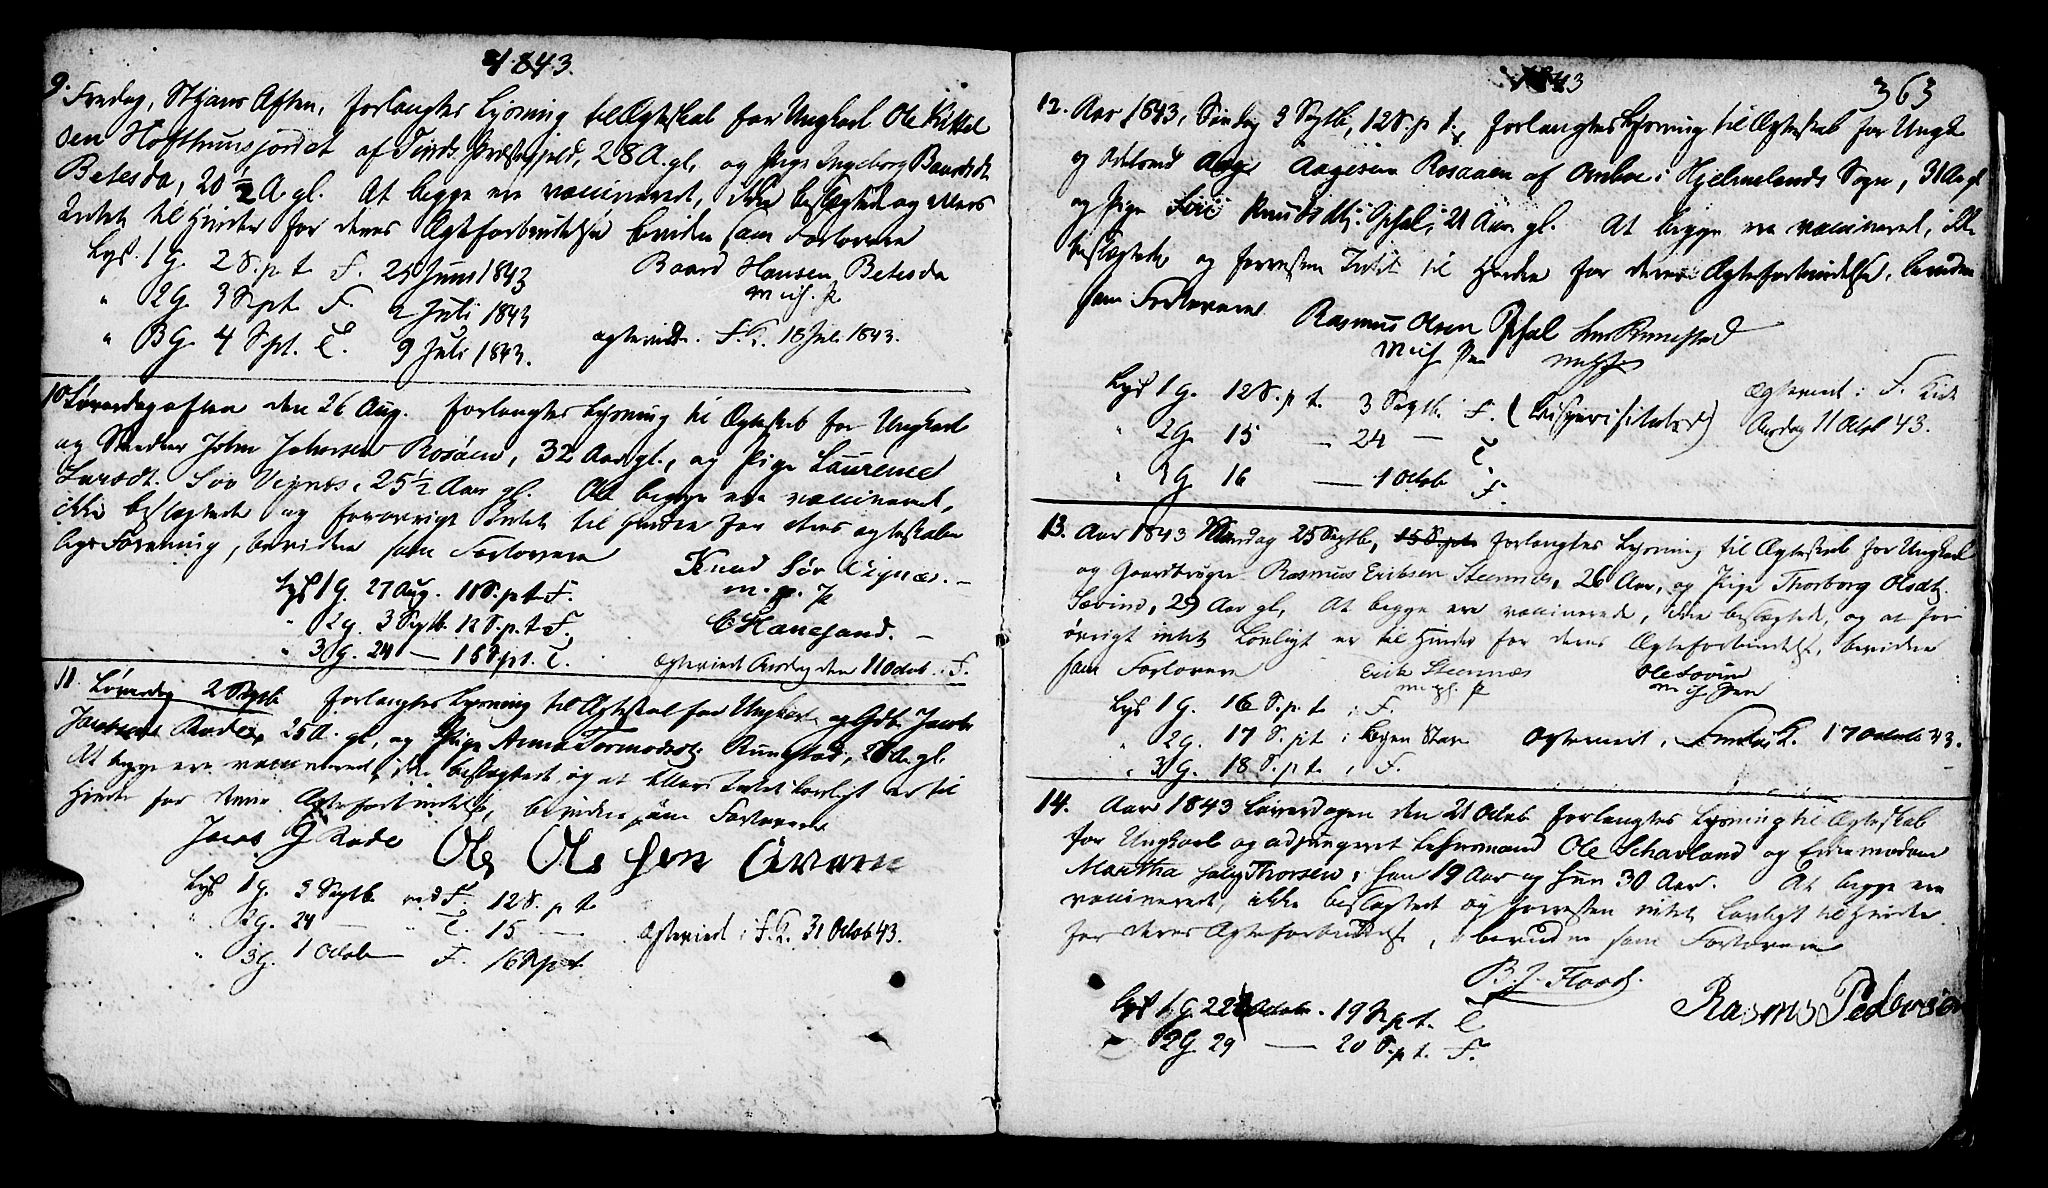 1843.
9. Fredag, St Hans Aften, forlangtes Lysning til Ægteskab for Ungkarl Ole Kittel
sen Hofthuusjordet af Tinds Præstegjeld, 28 A. gl, og Pige Ingeborg Baardsdt
Betesda, 20 1/2 A gl. At begge ere vaccinerede, ikke beslægtede og ellers
Intet til Hinder for deres Ægteforbindelse bevidne som Forlovere
Lys. 1 G. 2 S. p. t. F. 25 Juni 1843 Baard Hansen Betesda
" 2G. 3 S.p.t. F. 2 Juli 1843 m. i h. P.
" 3G. 4 S.p.t. T. 9 Juli 1843. ægteviede. F.K. 18 Juli 1843.
10. Løverdag aften den 26 Aug. forlangtes Lysning til Ægteskab for Ungkarl
og Skræder John Johnsen Rosåen, 32 Aar gl., og Pige Laurense
Larsdt. Søv Vignes, 25 1/2 Aar gl. At begge ere vaccinerede,
ikke beslægtede og forøvrigt Intet til Hinder for deres ægteskabe
lige Forening, bevidne som Forlovere
Knud Søv Vignæs. -
Lyst 1 G. 27 Aug. 11 S. p. t. F. m. p. P
" 2 G. 3 Septb. 12 S. p. t. F. C Hanesand. -
" 3 G. 24 — 15 S. p. t. T. ægteviede Onsdag den 11 Octob. i F.
11. Løverdag 2 Septb forlangtes Lysning til Ægteskab for Ungkarl og Gdb. Jacob
Rade, 25 A. gl, og Pige Anna Tormodsdt Runestad, A. gl.
At begge ere vaccinerede, ikke beslægtede og at ellers Intet lovligt er til
Hinder for deres Ægteforbindelse, bevidne som Forlovere
Jacob G Rade Ole Ole sen
Lyst 1 G. 3 Septb ved F. 12 S. p. t.
" 2 G. 24 — " T. 15 — Ægteviede i F. K. 31 Octob 43.
" 3 G. 1 Octob — F. 16 S p. t.
1843 363
12. Aar 1843, Søndag 3 Septb, 12 S. p t., forlangtes Lysning til Ægteskab for Ungk
og Aage Aagesen Rosaaen af Omboe i Hjelmelands Sogn, 31 Aar gl
og Pige Siri Knudsdtr Opsal, 21 Aar gl. At begge ere vaccinerede, ikke
beslægtede og forresten Intet til Hinder for deres Ægteforbindelse, bevidne
som Forlovere Rasmus Olsen Opsal Runestad
m i h Pen
Lys 1 G. 12 S. p t. 3 Septb. F. Ægteviede i F. Kirk
" 2 G. 15 — 24 — T. Onsdag 11 Octob 43.
" 3 G. 16 — 1 Octob F.
13. Aar 1843 Mandag 25 Septb, 15 S.p.t. forlangtes Lysning til Ægteskab for Ungkarl
og Gaardbruger Rasmus Eriksen Steennæs, 26 Aar, og Pige Thorborg Olsdt.
Søvind, 29 Aar gl, At begge ere vaccinerede, ikke beslægtede, og at for
øvrigt intet Lovligt er til Hinder for deres Ægteforbindelse, bevidne
som Forlovere Erik Steennæs Ole Søvind
m. i h. P m i h Pen
Lys 1 G. 16 S. p. t i F.
" 2 G. 17 S. p t i Ægteviede i K. 17 Octob 43.
" 3 G. 18 S. p t. i F.
14. Aar 1843 Løverdagen den 21 Octob forlangtes Lysning til Ægteskab
for Ungkarl og adjungeret Lehnsmand Ole Schavland og Enkemadam
Martha Thorsen, han 19 Aar og hun 30 Aar. At begge ere
vaccinerede, ikke beslægtede og forresten intet Lovligt til Hinder
for deres Ægteforbindelse, bevidne som Forlovere
B. J. Flood.
Rasmus Pedersen
Lyst 1 G. 22 Octob. 19 S p t. T
" 2G. 29 — 20 S. p t. F.